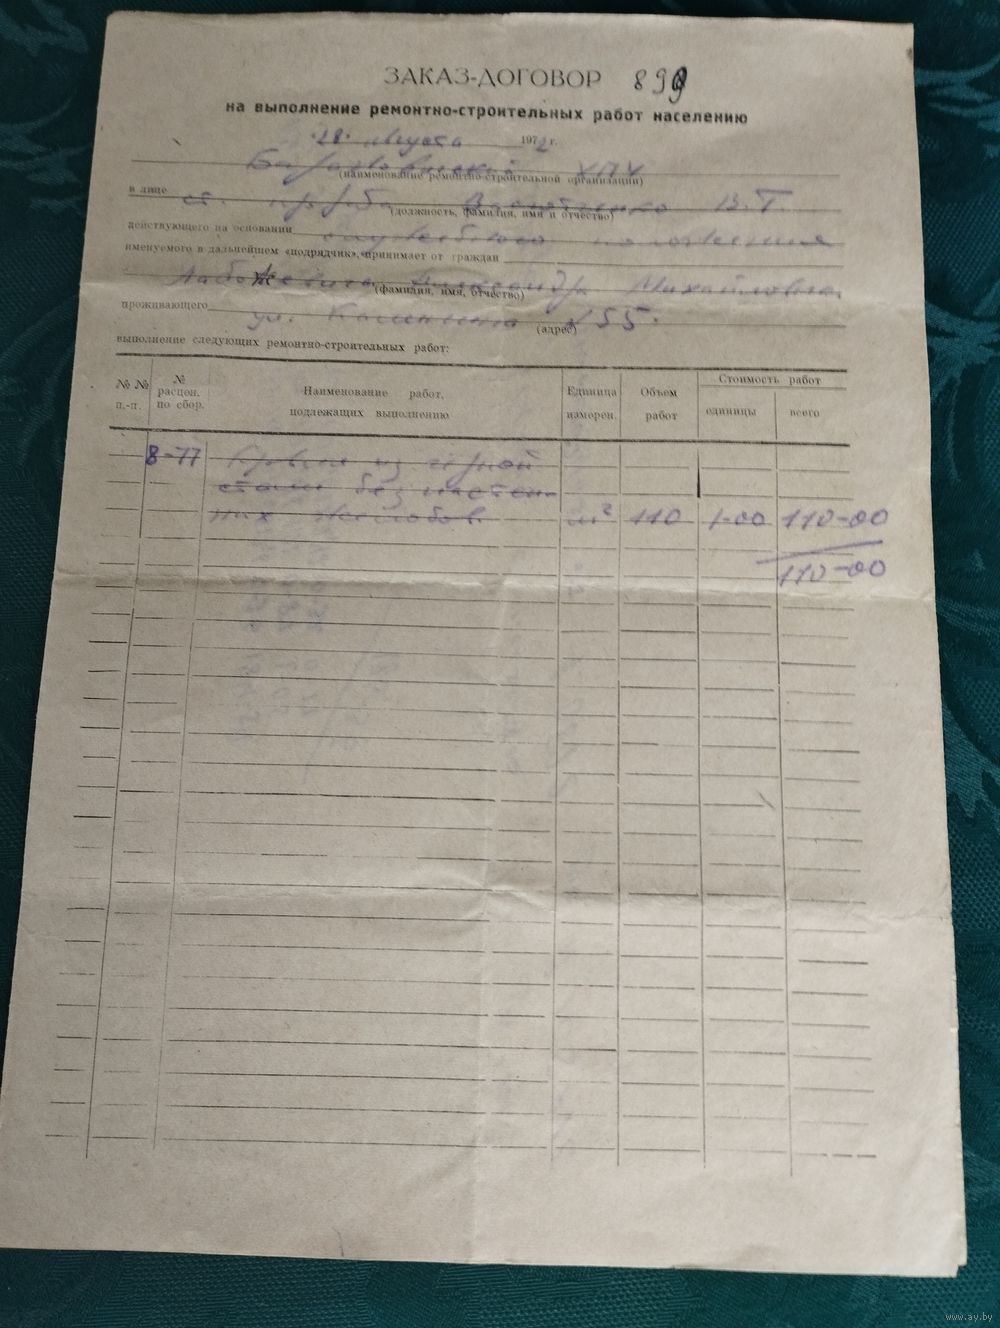 ЗАКАЗ-ДОГОВОР 899
на выполнение ремонтно-строительных работ населению
"28" августа 1972 г.
(наименование ремонтно-строительной организации)
в лице ст. прораба В. Т.
(должность, фамилия, имя и отчество)
действующего на основании служебного положения
именуемого в дальнейшем «подрядчик», принимает от граждан
Михайловича
(фамилия, имя, отчество)
проживающего ул. Калинина 55.
(адрес)
выполнение следующих ремонтно-строительных работ:
№ № п.-п. № расцен. по сбор. Наименование работ, подлежащих выполнению Единица измерен. Объем работ Стоимость работ единицы всего
8-77 Кровля из черной
стали без настен-
ных желобов м² 110 1-00 110-00
110-00
www.ay.by